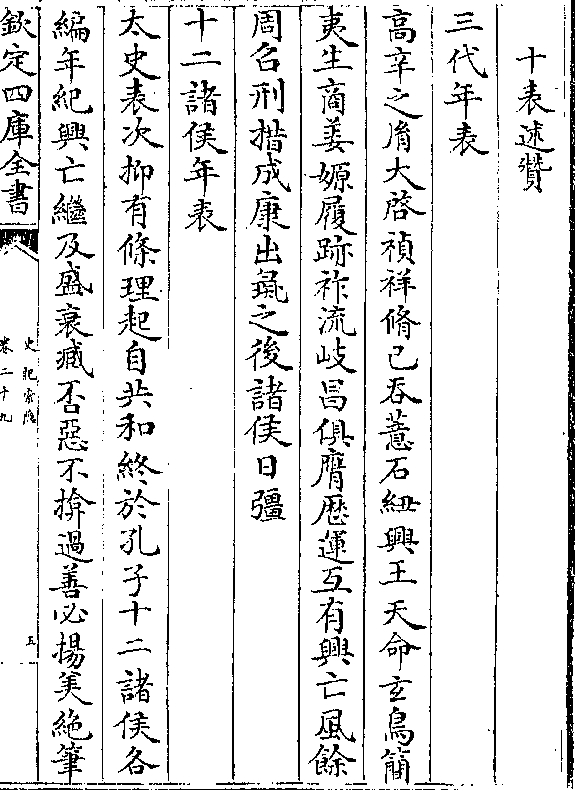 十表述贊
三代年表
高辛之𦙍大啓禎祥脩己吞薏石紐興王天命玄鳥簡
夷生商姜嫄履跡祚流岐昌俱膺厯運互有興亡風餘
周召刑措成康出彘之後諸侯日彊
十二諸侯年表
太史表次抑有條理起自共和終於孔子十二諸侯各
編年紀興亡繼及盛衰臧否惡不揜過善必揚美絶筆
欽定四庫全書
史記索隱
卷二十九
五